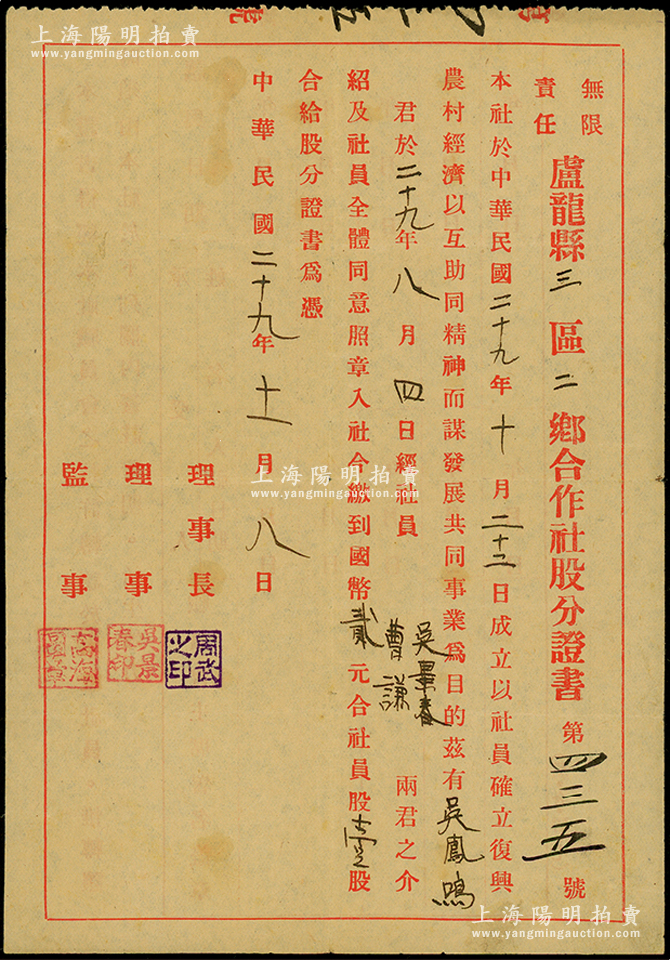 上海陽明拍賣
www.yangmingauction.com
無限
責任
盧龍縣三區二鄉合作社股分證書第四三五號
本社於中華民國二十九年十月二十三日成立以社員確立復興
農村經濟以互助同精神而謀發展共同事業爲目的茲有吳鳳鳴
君於二十九年八月四日經社員吳景春曹謙兩君之介
紹及社員全體同意照章入社合繳到國幣貳元合社員股壹股
合給股分證書爲憑
中華民國二十九年十一月八日
理事長
周武之印
理事
吳景春印
監事
上海陽明拍賣
www.yangmingauction.com
上海陽明拍賣
www.yangmingauction.com